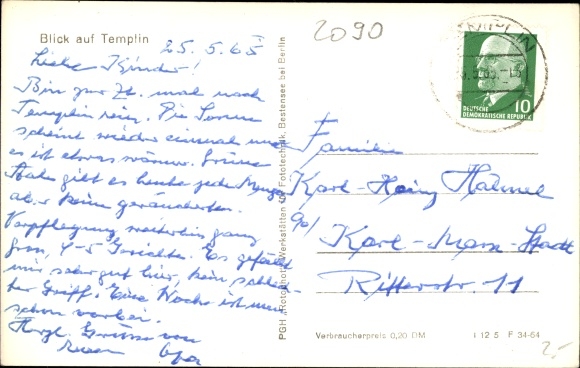 Blick auf Templin
25.5.65
Liebe Kinder!
Bin zur Zt. mal nach
Templin rein. Die Sonne
scheint wieder einmal und
es ist etwas wärmer. Grüne
Aale gibt es heute jede Menge
aber keine geräucherten.
Verpflegung weiterhin ganz
gross, 4-5 Gerichte. Es gefällt
mir sehr gut hier, kein schlech-
ter Griff. Eine Woche ist nun
schon vorbei.
Herzl. Grüsse von
Opa
PGH »Rotophot« Werkstätten für Fototechnik Bestensee bei Berlin
2090
TEMPLIN
10
DEUTSCHE
DEMOKRATISCHE REPUBLIK
Familie
Karl-Heinz
90/ Karl-Marx-Stadt
Ritterstr. 11
Verbraucherpreis 0,20 DM I 12 5 F 34-64
2,-